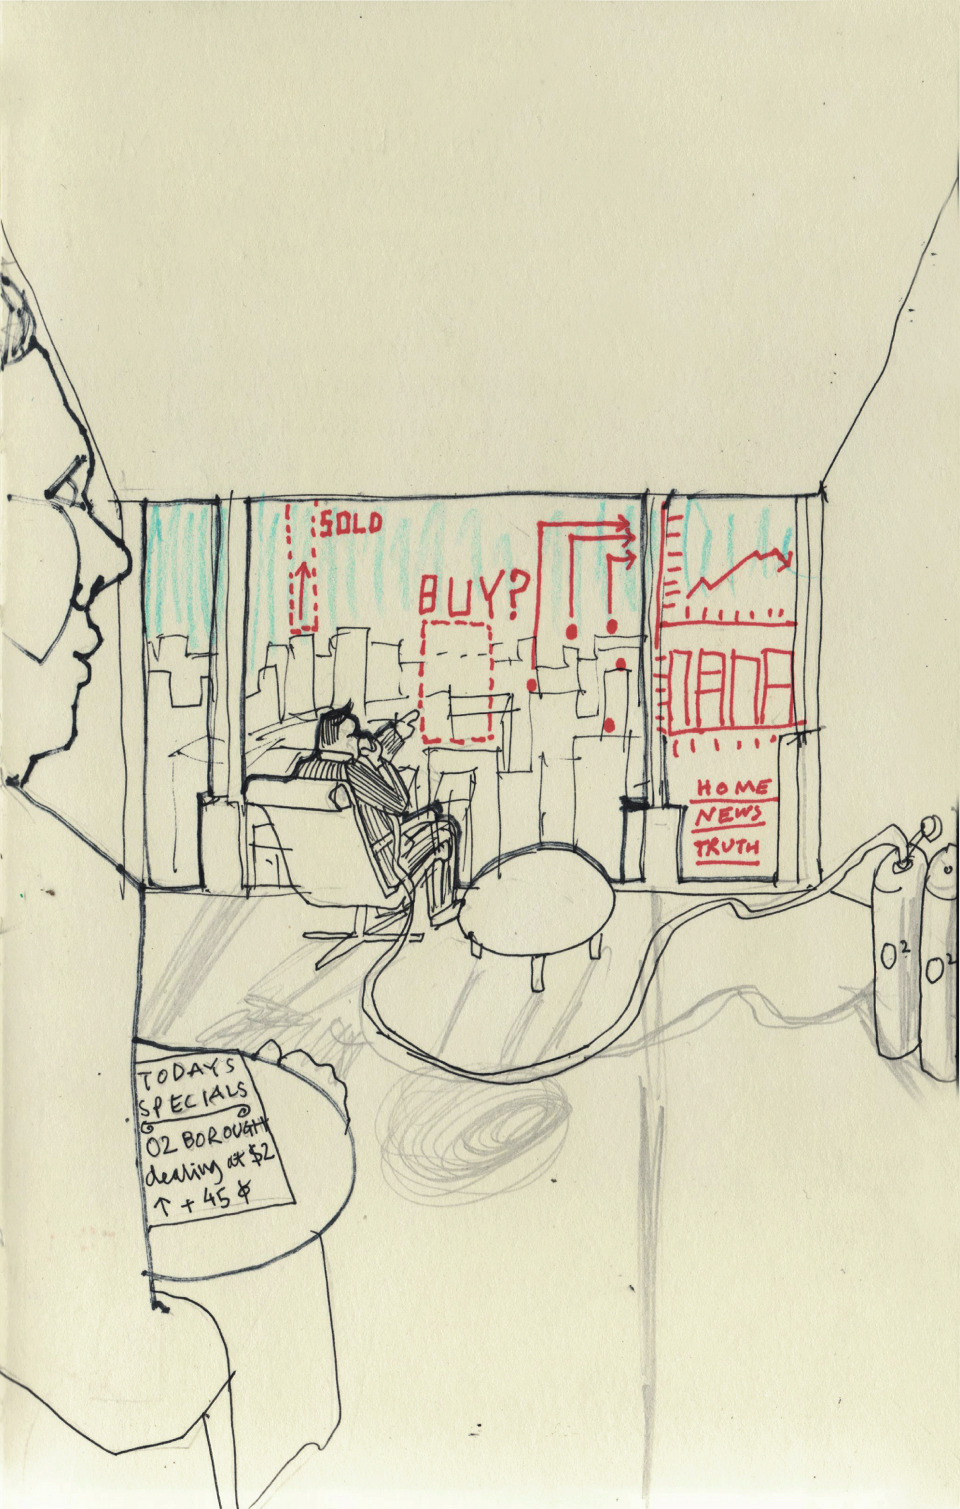 SOLD
BUY?
HOME
NEWS
TRUTH
O²
O²
TODAY'S
SPECIALS
O2 BOROUGH
dealing at $2
↑ + 45 ¢